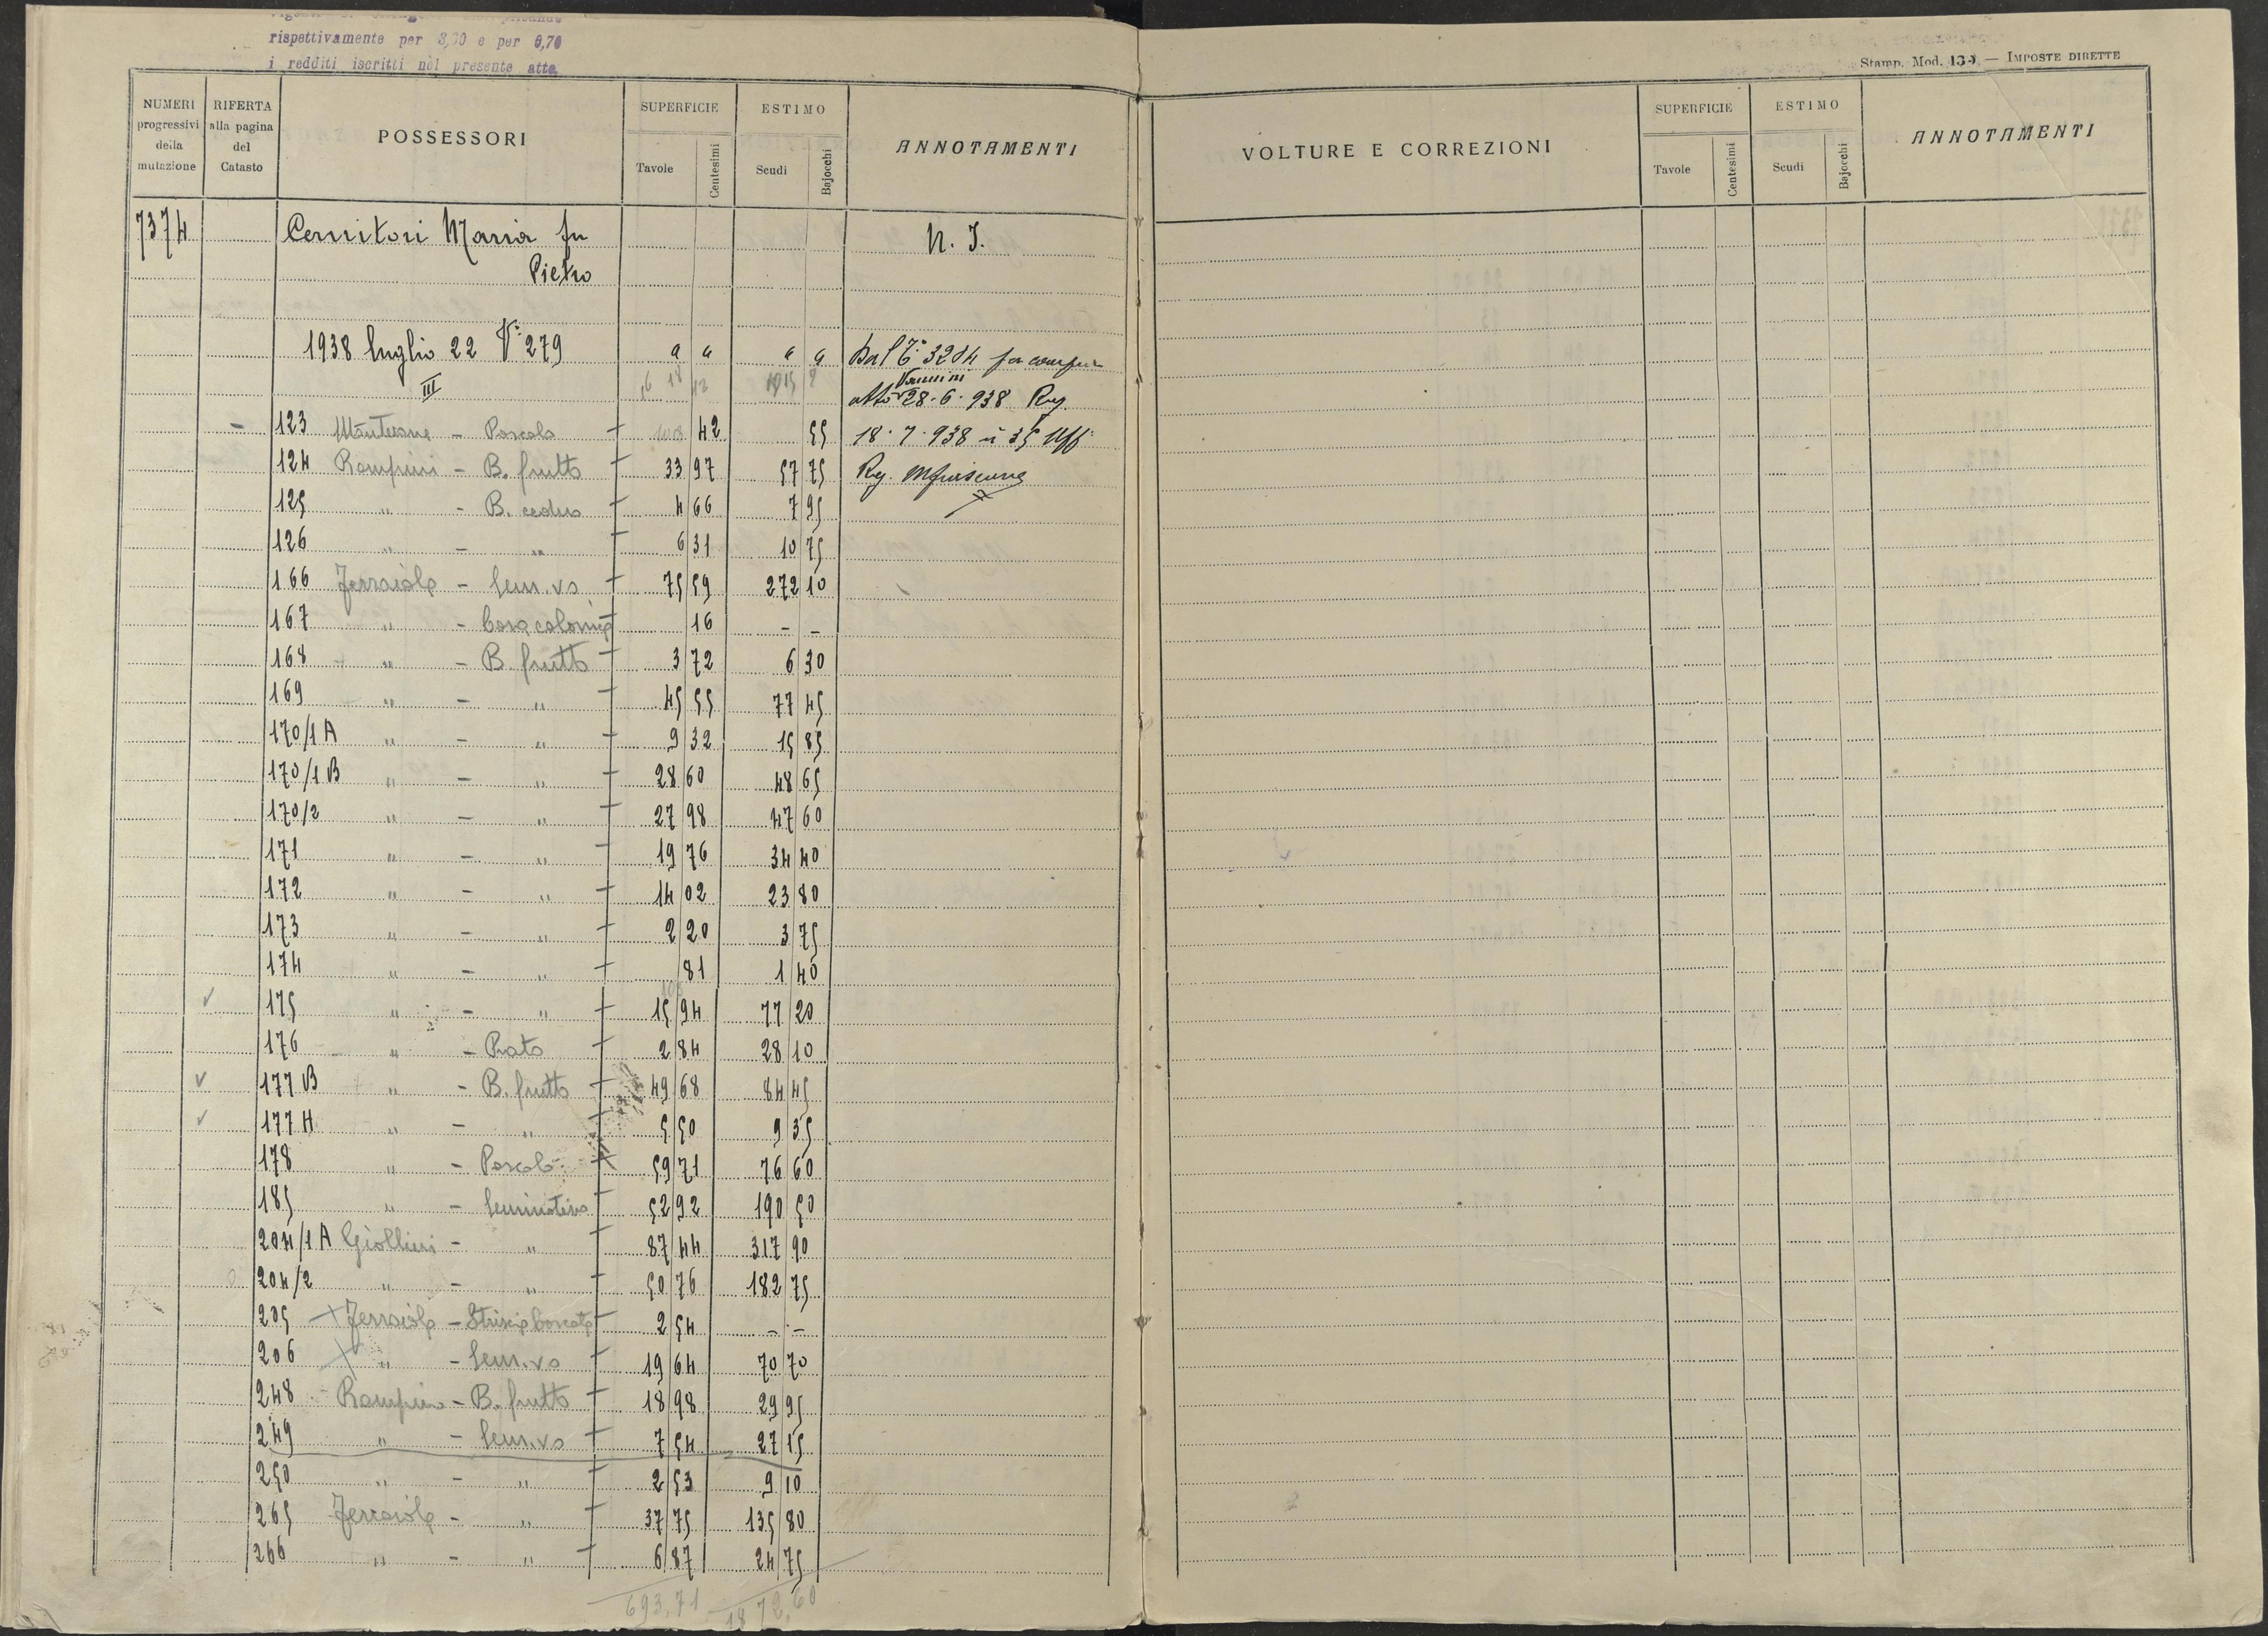 rispettivamente per 3,30 e per 6,70
i redditi iscritti nel presente atto.
Stamp. Mod. 134 — IMPOSTE DIRETTE
NUMERI progressivi della mutazione RIFERTA alla pagina del Catasto POSSESSORI SUPERFICIE Tavole Centesimi ESTIMO Scudi Bajocchi ANNOTAMENTI
VOLTURE E CORREZIONI SUPERFICIE Tavole Centesimi ESTIMO Scudi Bajocchi ANNOTAMENTI
7374 Cernitori Maria fu N. I.
Pietro
1938 luglio 22 V° 279 " " " " Dal 3204
III atto Vannini 28.6.938 Reg.
123 - Pascolo 42 55 18.7.938 n 35 Uff
124 Rompini - B. frutto 33 97 57 75 Reg.
125 " - B. ceduo 4 66 7 95
126 " - " 6 31 10 75
166 Ferraiola - Sem.vo 75 59 272 10
167 " - Casa colonica 16 - -
168 " - B. frutto 3 72 6 30
169 " - " 45 55 77 45
170/1 A " - " 9 32 15 85
170/1 B " - " 28 60 48 65
170/2 " - " 27 98 47 60
171 " - " 19 76 34 40
172 " - " 14 02 23 80
173 " - " 2 20 3 75
174 " - " 81 1 40
175 " - " 15 94 77 20
176 " - Prato 2 84 28 10
177 B " - B. frutto 49 68 84 45
177 H " - " 5 50 9 35
178 " - Pascolo 59 71 76 60
185 " - Seminativo 52 92 190 50
204/1 A Giollieri - " 87 44 317 90
204/2 " - " 50 76 182 75
205 Ferraiola - Striscia boscata 2 54 - -
206 " - Sem.vo 19 64 70 70
248 Rompino - B. frutto 18 98 29 95
249 " - Sem.vo 7 54 27 15
250 " - " 2 53 9 10
265 Ferraiola - " 37 75 135 80
266 " - " 6 87 24 75
693,71 1872,60